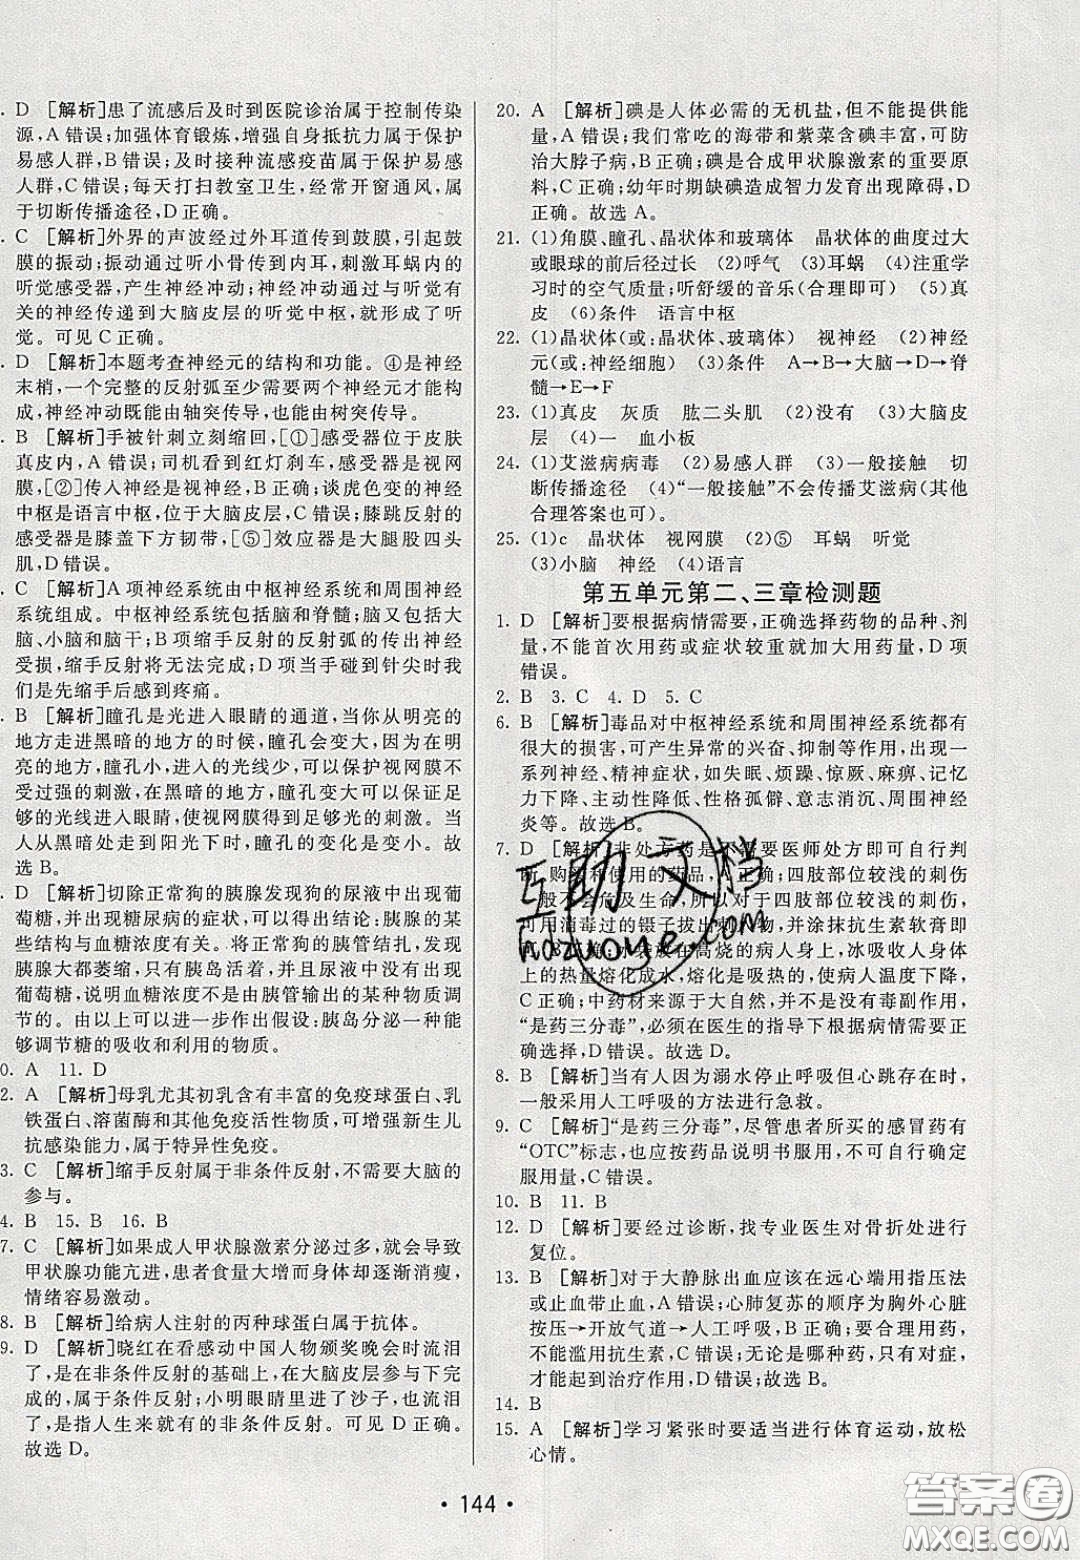 . D [解析]患了流感后及时到医院诊治属于控制传染
源,A错误;加强体育锻炼,增强自身抵抗力属于保护
易感人群,B错误;及时接种流感疫苗属于保护易感
人群,C错误;每天打扫教室卫生,经常开窗通风,属
于切断传播途径,D正确。
. C [解析]外界的声波经过外耳道传到鼓膜,引起鼓
膜的振动;振动通过听小骨传到内耳,刺激耳蜗内的
听觉感受器,产生神经冲动;神经冲动通过与听觉有
关的神经传递到大脑皮层的听觉中枢,就形成了听
觉。可见C正确。
. D [解析]本题考查神经元的结构和功能。④是神经
末梢,一个完整的反射弧至少需要两个神经元才能构
成,神经冲动既能由轴突传导,也能由树突传导。
. B [解析]手被针刺立刻缩回,[①]感受器位于皮肤
真皮内,A错误;司机看到红灯刹车,感受器是视网
膜,[②]传入神经是视神经,B正确;谈虎色变的神经
中枢是语言中枢,位于大脑皮层,C错误;膝跳反射的
感受器是膝盖下方韧带,[⑤]效应器是大腿股四头
肌,D错误。
. C [解析]A项神经系统由中枢神经系统和周围神经
系统组成。中枢神经系统包括脑和脊髓;脑包括大
脑、小脑和脑干;B项缩手反射的反射弧的神经中枢
受损,缩手反射将无法完成;D项当手碰到针尖时我
们是先缩手后感到疼痛。
. B [解析]瞳孔是光进入眼睛的通道,当你从明亮的
地方走进黑暗的地方的时候,瞳孔会变大,因为在明
亮的地方,瞳孔小,进入的光线少,可以保护视网膜不
受过强的刺激,在黑暗的地方,瞳孔大可以保证足够
的光线进入眼睛,使视网膜得到足够光的刺激。当
人从黑暗处走到阳光下时,瞳孔的变化是变小。故
选B。
. D [解析]切除正常狗的胰腺发现狗的尿液中出现葡
萄糖,并出现糖尿病的症状,可以得出结论:胰腺的某
些结构与血糖浓度有关。将正常狗的胰管结扎,发现
胰腺大都萎缩,只有胰岛活着,并且尿液中没有出现
葡萄糖,说明血糖浓度不是由胰管输出的某种物质调
节的。由以上可以进一步作出假设:胰岛分泌一种能
够调节糖的吸收和利用的物质。
0. A 11. D
2. A [解析]母乳尤其初乳含有丰富的免疫球蛋白、乳
铁蛋白、溶菌酶和其他免疫活性物质,可增强新生儿
抗感染能力,属于特异性免疫。
3. C [解析]缩手反射属于非条件反射,不需要大脑的
参与。
4. B 15. B 16. B
7. C [解析]如果成人甲状腺激素分泌过多,就会患
甲状腺功能亢进,患者食量大增但身体却逐渐消瘦,
情绪容易激动。
8. B [解析]给病人注射的丙种球蛋白属于抗体。
9. D [解析]晓红在看感动中国人物颁奖晚会时流泪
了,是在非条件反射的基础上,在大脑皮层参与下完
成的,属于条件反射;小明眼睛里进了沙子,也流泪
了,是指人生来就有的非条件反射。可见D正确。
故选D。
20. A [解析]碘是人体必需的无机盐,但不能提供能
量,A错误;我们常吃的海带和紫菜含碘丰富,可防
治大脖子病,B正确;碘是合成甲状腺激素的重要原
料,C正确;幼年时期缺碘造成智力发育出现障碍,D
正确。故选A。
21. (1)角膜、瞳孔、晶状体和玻璃体 晶状体的曲度过大
或眼球的前后径过长 (2)呼气 (3)耳蜗 (4)注重学
习时的空气质量;听舒缓的音乐(合理即可) (5)真
皮 (6)条件 语言中枢
22. (1)晶状体(或:晶状体、玻璃体) 视神经 (2)神经
元(或:神经细胞) (3)条件 A→B→大脑→D→脊
髓→E→F
23. (1)真皮 灰质 肱二头肌 (2)没有 (3)大脑皮
层 (4)一 血小板
24. (1)艾滋病病毒 (2)易感人群 (3)一般接触 切
断传播途径 (4)“一般接触”不会传播艾滋病(其他
合理答案也可)。
25. (1)c 晶状体 视网膜 (2)⑤ 耳蜗 听觉
(3)小脑 神经 (4)语言
第五单元第二、三章检测题
1. D [解析]要根据病情需要,正确选择药物的品种、剂
量,不能首次用药或症状较重就加大用药量,D项
错误。
2. B 3. C 4. D 5. C
6. B [解析]毒品对中枢神经系统和周围神经系统都有
很大的损害,可产生异常的兴奋、抑制等作用,出现一
系列神经、精神症状,如失眠、烦躁、惊厥、麻痹、记忆
力下降、主动性降低、性格孤僻、意志消沉、周围神经
炎等。故选B。
7. D [解析]非处方药是不需要医师处方即可自行判
断、购买和使用的药品,A正确;四肢部位较浅的刺伤,
一般不会危及生命,所以对于四肢部位较浅的刺伤,
可用消毒过的镊子拔出刺入物,并涂抹抗生素软膏即
可,B正确;冰袋放在高烧的病人身上,冰吸收人身体
上的热量熔化成水,熔化是吸热的,使病人温度下降,
C正确;中药材来源于大自然,并不是没有毒副作用,
“是药三分毒”,必须在医生的指导下根据病情需要正
确选择,D错误。故选D。
8. B [解析]当有人因为溺水停止呼吸但心跳存在时,
一般采用人工呼吸的方法进行急救。
9. C [解析]“是药三分毒”,尽管患者所买的感冒药有
“OTC”标志,也应按药品说明书服用,不能自行确定
服用量,C错误。
10. B 11. B
12. D [解析]要经过诊断,找专业医生对骨折处进行
复位。
13. B [解析]对于大静脉出血应该在远心端用指压法
或止血带止血,A错误;心肺复苏的顺序为胸外心脏
按压→开放气道→人工呼吸,B正确;要合理用药,
不能滥用抗生素,C错误;无论是哪种药,只有对症,
才能起到治疗作用,D错误。故选B。
14. B
15. A [解析]学习紧张时要适当进行体育运动,放松
心情。
互助文档
hdzuoye.com
• 144 •
答案圈
MXQE.COM